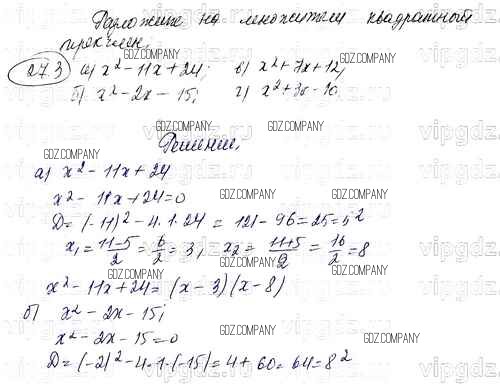 Разложите на множители квадратный
трехчлен.
27.3 а) x² - 11x + 24; в) x² + 7x + 12,
б) x² - 2x - 15; г) x² + 3x - 10.
Решение,
а) x² - 11x + 24
x² - 11x + 24 = 0
D = (-11)² - 4·1·24 = 121 - 96 = 25 = 5²
x₁ = (11-5)/2 = 6/2 = 3, x₂ = (11+5)/2 = 16/2 = 8
x² - 11x + 24 = (x - 3)(x - 8)
б) x² - 2x - 15;
x² - 2x - 15 = 0
D = (-2)² - 4·1·(-15) = 4 + 60 = 64 = 8²